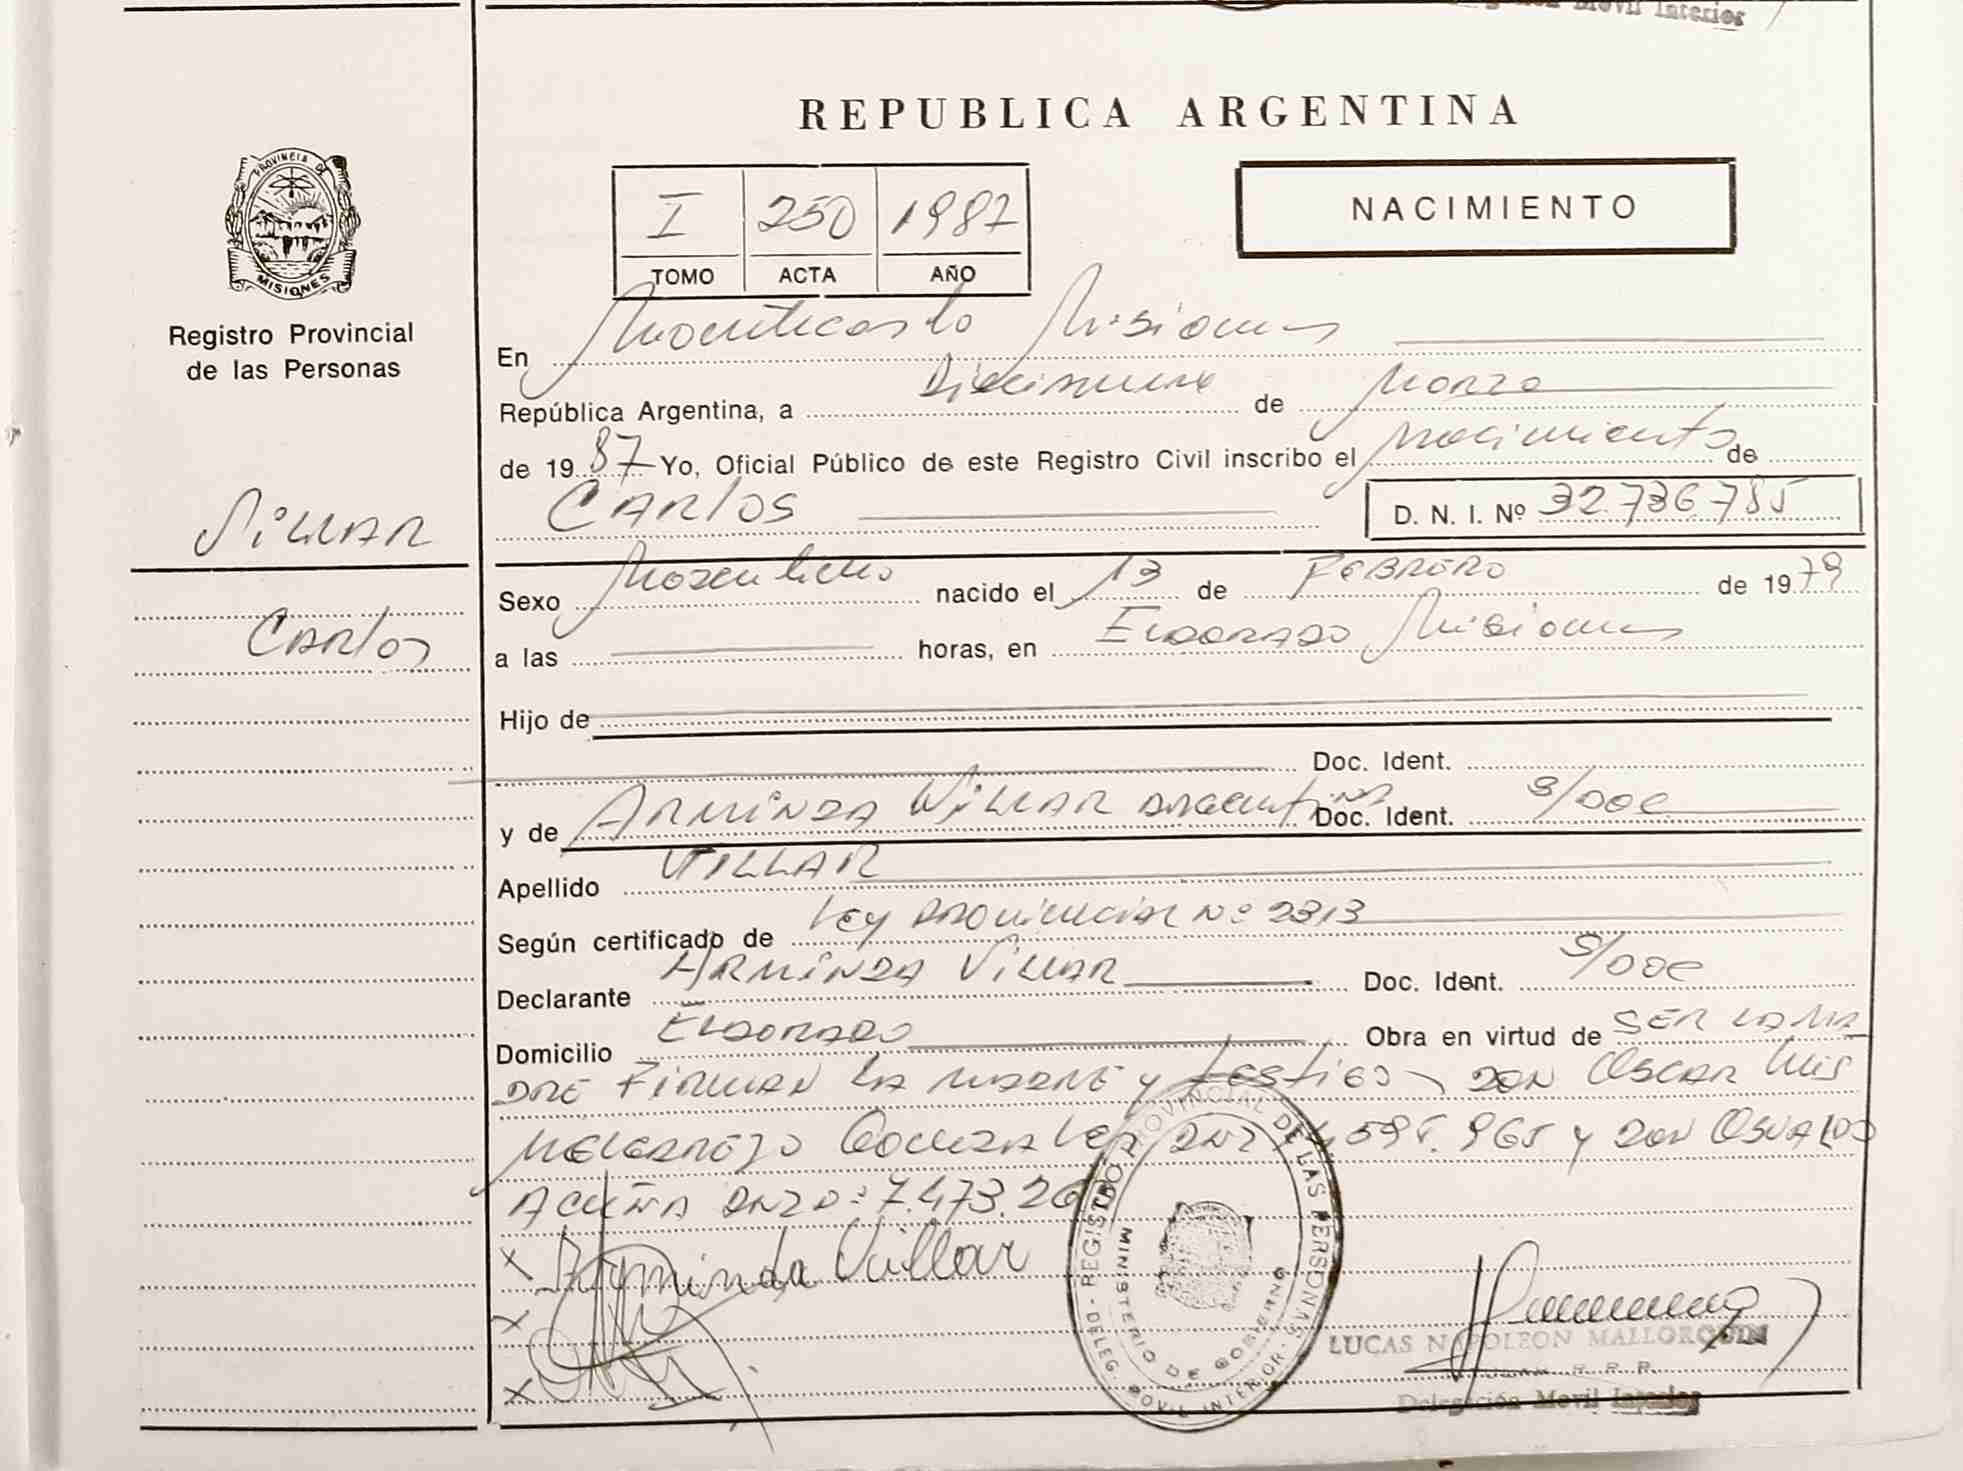 Movil Interior
REPUBLICA ARGENTINA
PROVINCIA DE
MISIONES
Registro Provincial
de las Personas
I 250 1987
TOMO ACTA AÑO
NACIMIENTO
En Montecarlo Misiones
República Argentina, a Diecinueve de Marzo
de 19 87 Yo, Oficial Público de este Registro Civil inscribo el Nacimiento de
Carlos D. N. I. Nº 32.736.785
Villar
Sexo Masculino nacido el 13 de Febrero de 19 79
Carlos
a las horas, en Eldorado Misiones
Hijo de
Doc. Ident.
y de Arminda Villar argentina Doc. Ident. S/doc
Apellido VILLAR
Según certificado de Ley Provincial Nº 2313
Declarante Arminda Villar Doc. Ident. S/doc
Domicilio Eldorado Obra en virtud de SER LA MA
DRE Firman la madre y testigos don Oscar Luis
Gonzalez y don Osvaldo
Acuña
x Arminda Villar
x
x
REGISTRO PROVINCIAL DE LAS PERSONAS - DELEG. MOVIL INTERIOR -
MINISTERIO DE GOBIERNO
LUCAS NAPOLEON MALLORQUIN
Delegación Movil Interior